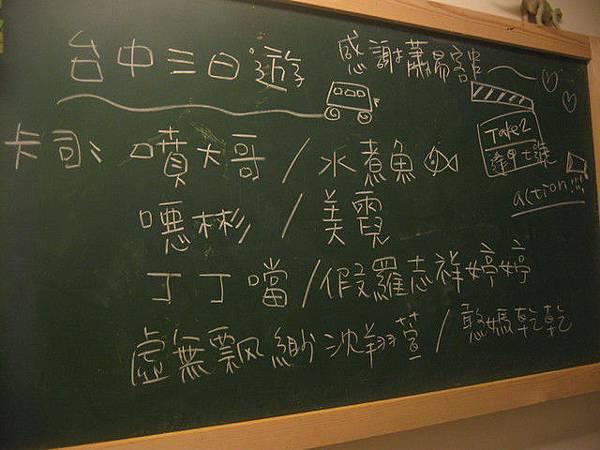 台中三日遊
感謝蕭易客串
Take 2
action!!!
卡司: 噴大哥/水煮魚
噁彬/美霓
丁丁噹/假羅志祥婷婷
虛無飄緲沈翔萱/憨媽乾乾